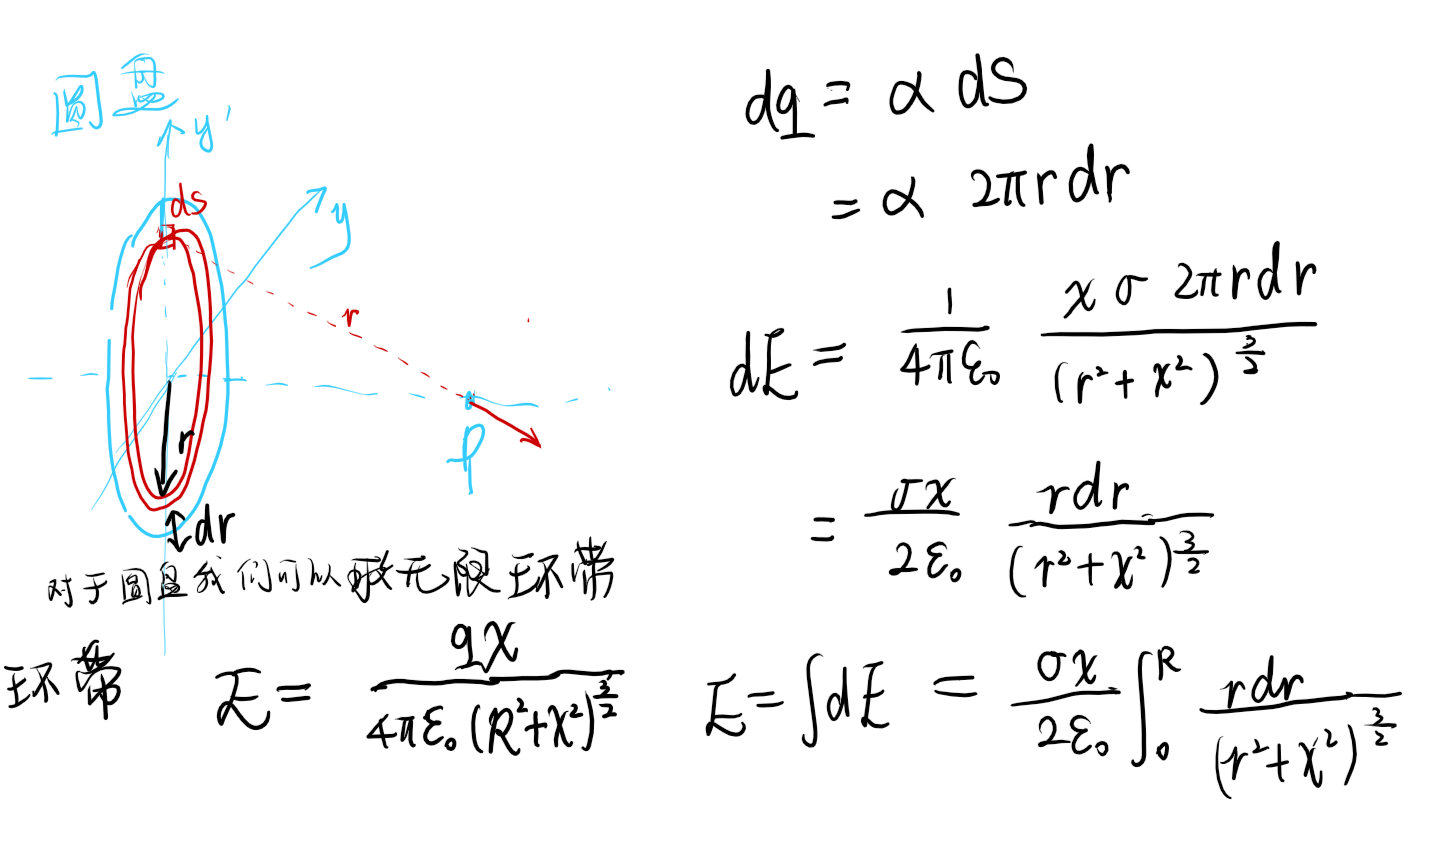 圆盘
y'
ds
y
r
P
r
dr
对于圆盘我们可以取无限环带
环带 E = qx / 4πε₀(R²+x²)^(3/2)
dq = α dS
= α 2πrdr
dE = 1/4πε₀ xσ2πrdr / (r²+x²)^(3/2)
= σx/2ε₀ rdr / (r²+x²)^(3/2)
E = ∫dE = σx/2ε₀ ∫₀ᴿ rdr / (r²+x²)^(3/2)